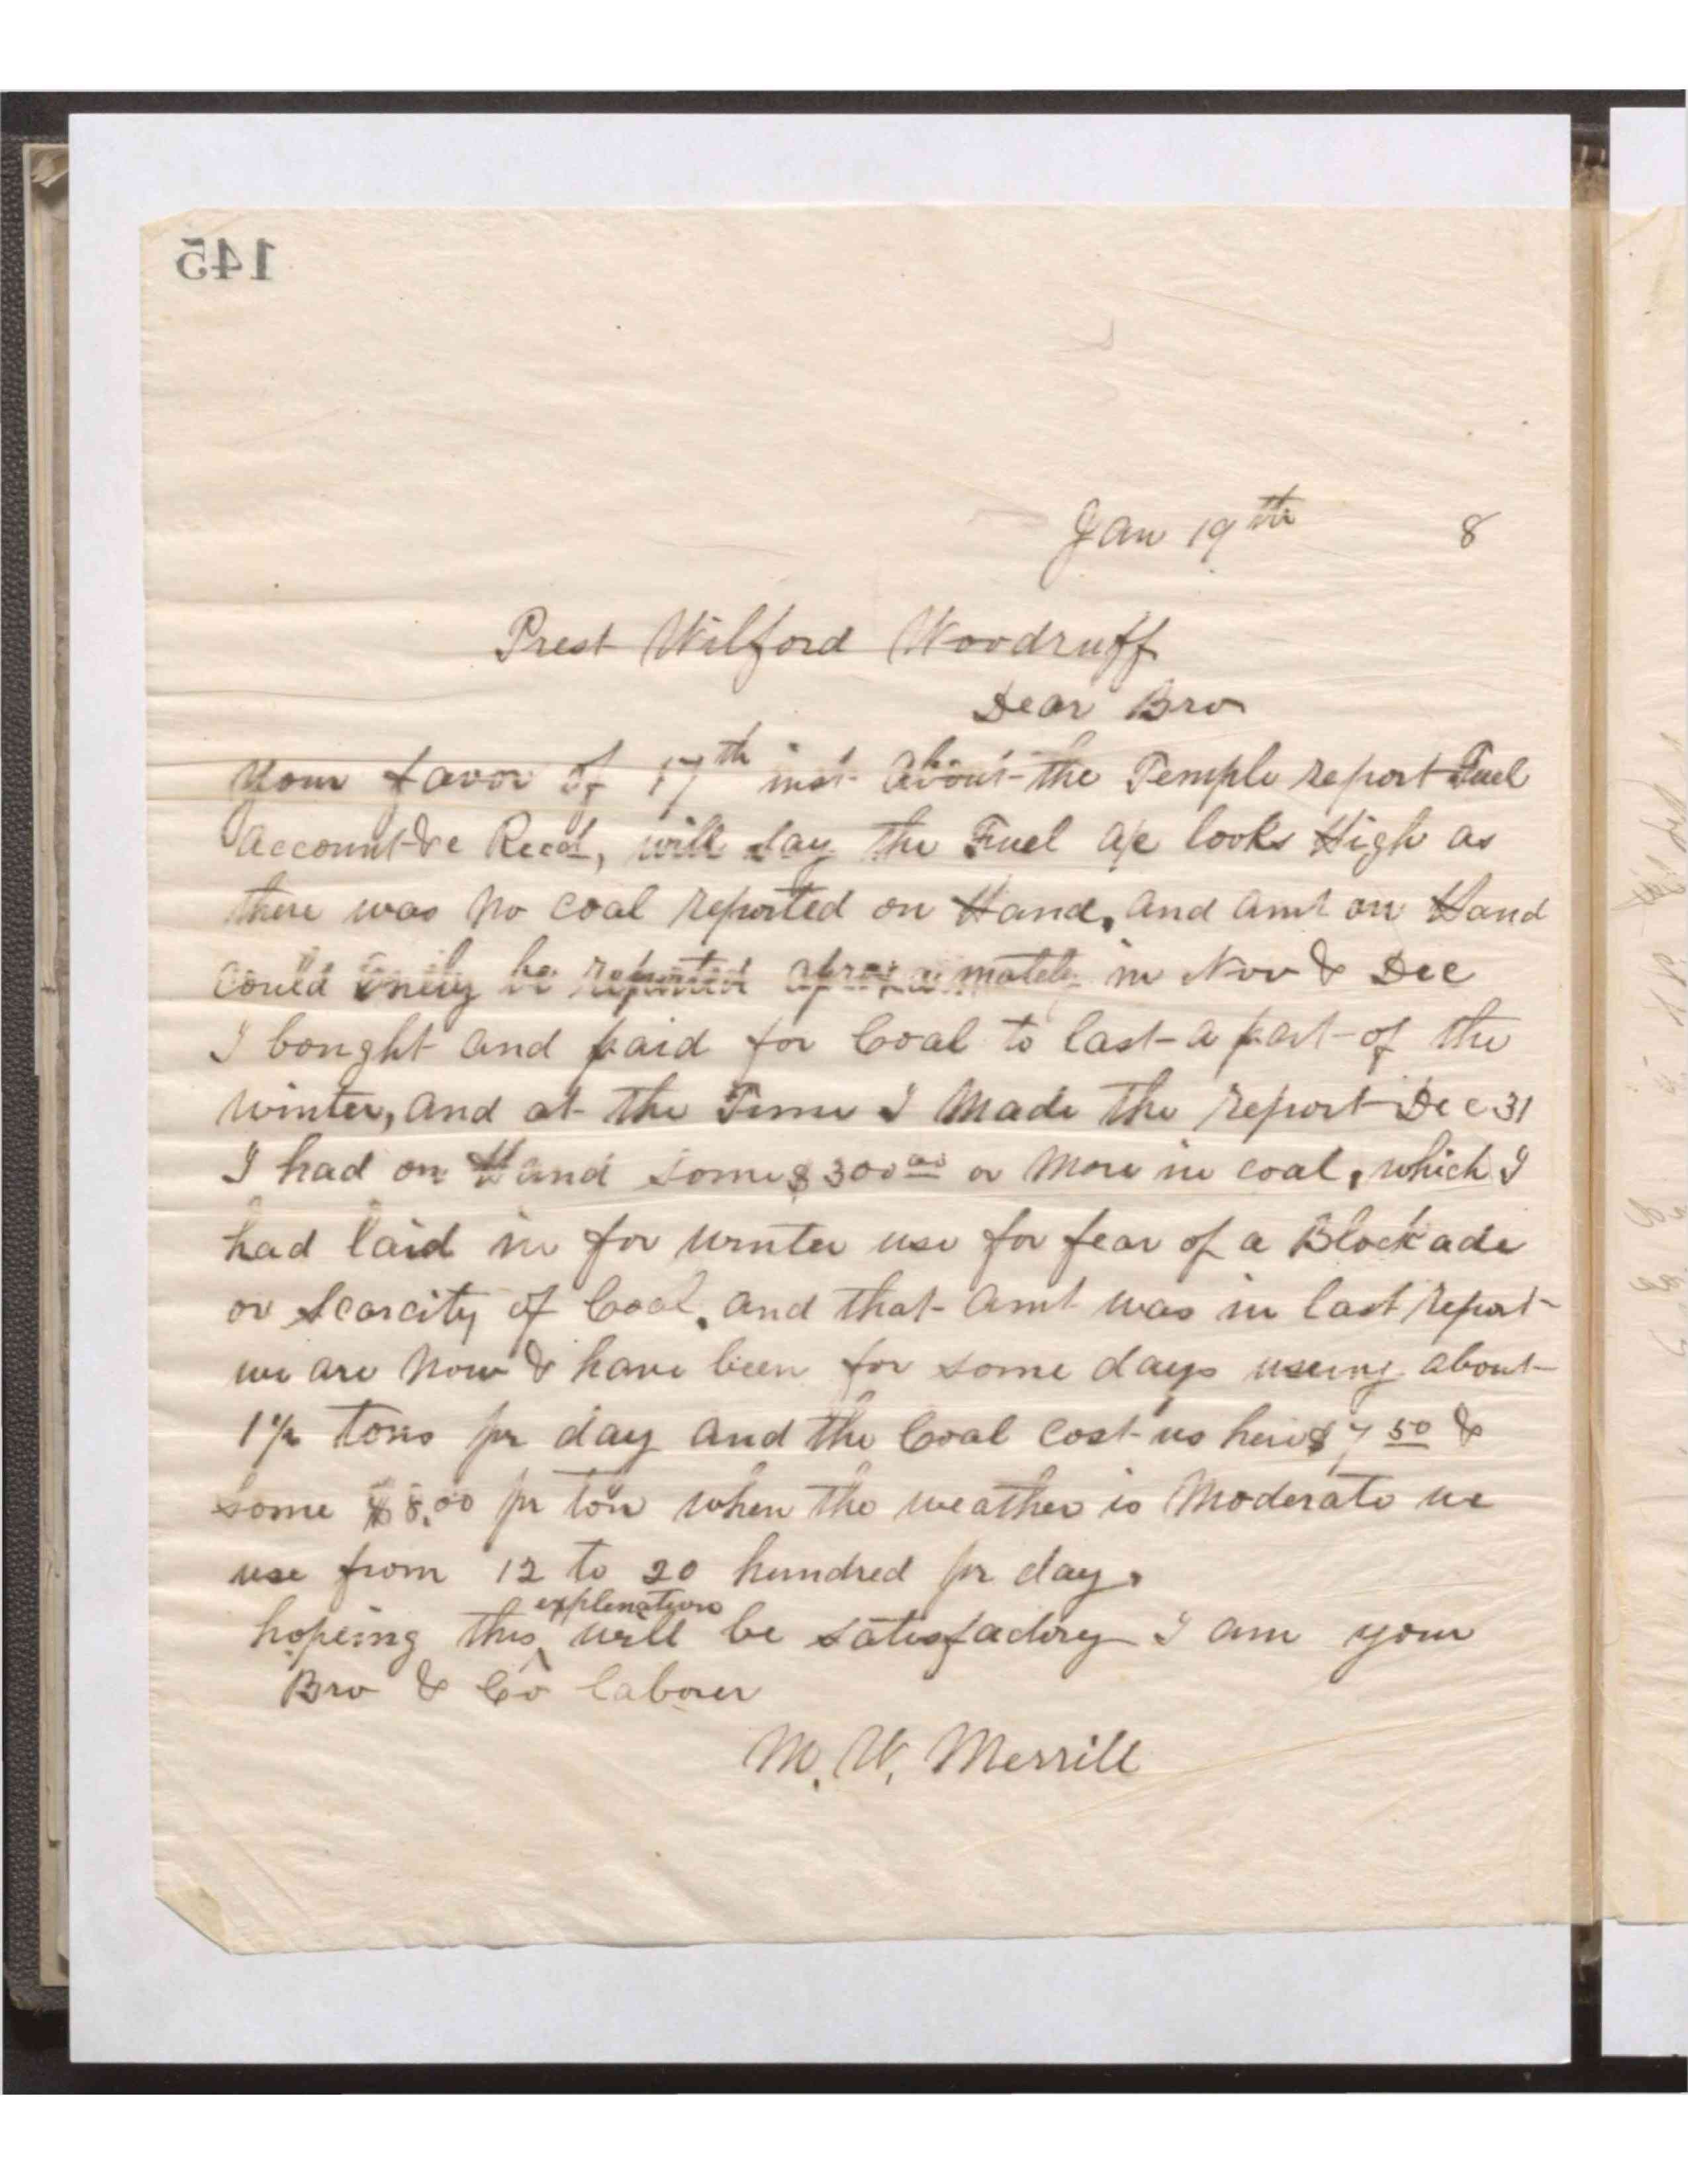 145
Jan 19th 8
Prest Wilford Woodruff
Dear Bro
Your favor of 17th inst about the Temple report Fuel
Account &c Recd, will say the Fuel a/c looks High as
there was no coal reported on Hand, and amt on Hand
could onely be reported aproximately in Nov & Dec
I bought and paid for Coal to last a part of the
winter, and at the Time I Made the report Dec 31
I had on Hand some $300.00 or More in coal, which I
had laid in for winter use for fear of a Blockade
or Scarcity of Coal, and that amt was in last report
we are Now & have been for some days useing about
1 1/2 tons pr day and the Coal cost us here $7 50 &
some $8.00 pr ton when the weather is Moderate we
use from 12 to 20 hundred pr day.
hopeing this ^explenation will be satisfactory I am your
Bro & Co labour
M. W. Merrill